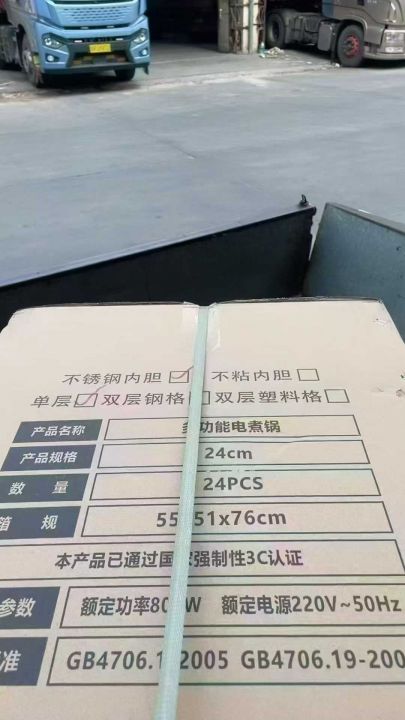 不锈钢内胆☑ 不粘内胆☐
单层☑ 双层钢格☐ 双层塑料格☐
产品名称 功能电煮锅
产品规格 24cm
数 量 24PCS
箱 规 55 51x76cm
本产品已通过国家强制性3C认证
参数 额定功率80 W 额定电源220V~50Hz
准 GB4706.1 2005 GB4706.19-200